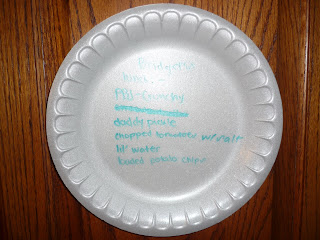 Bridgett's
lunch :-)
PBJ-Crunchy
daddy pickle
chopped tomatoes w/salt
lil' water
baked potato chips